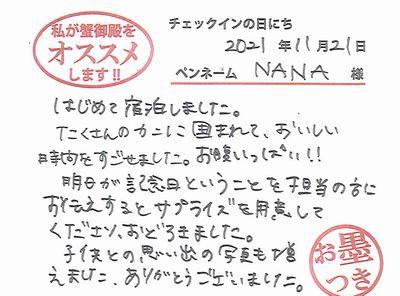 私が蟹御殿を
オススメ
します!!
チェックインの日にち
2021年11月21日
ペンネーム NANA 様
はじめて宿泊しました。
たくさんのカニに囲まれて、おいしい
時間をすごせました。お腹いっぱい!!
明日が記念日ということを担当の方に
お伝えするとサプライズを用意して
くださり、おどろきました。
子供との思い出の写真も増
えました、ありがとうございました。
お墨
つき